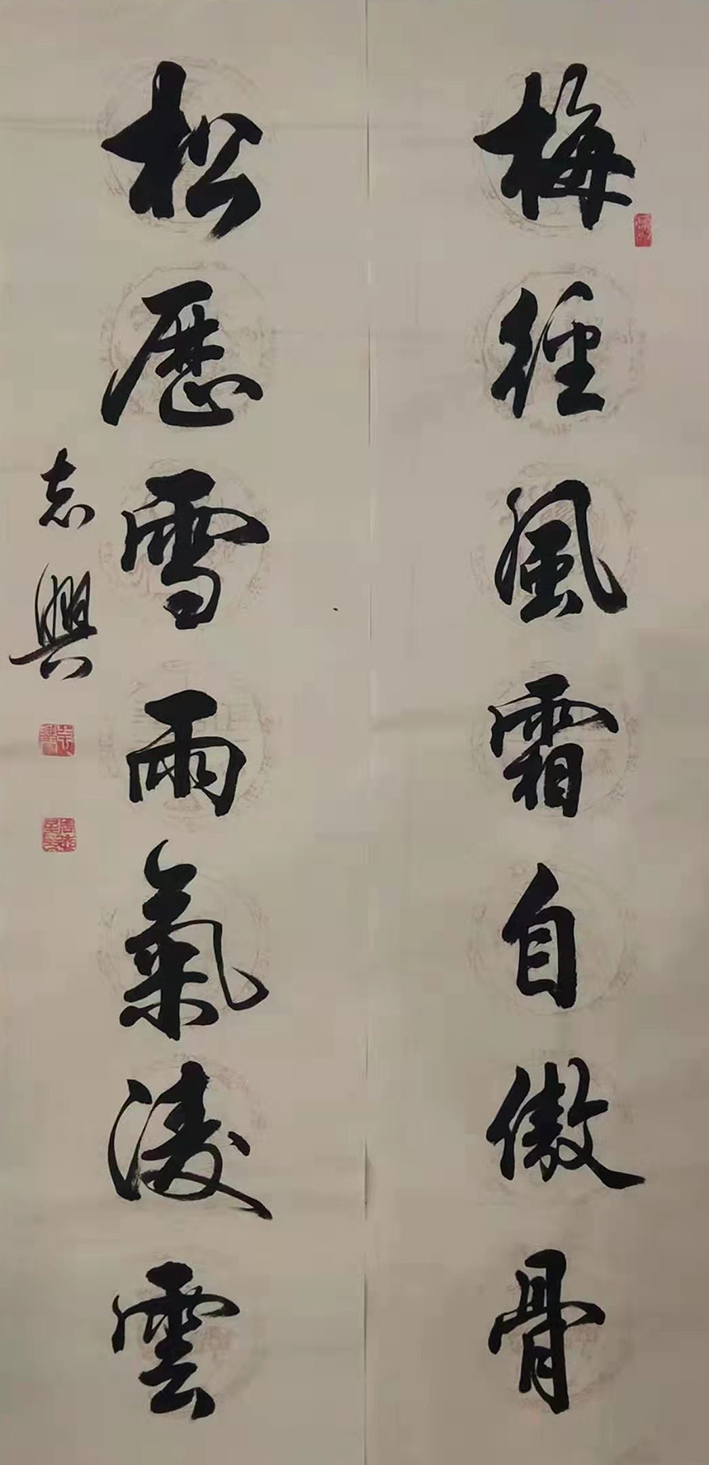 梅徑風霜自傲骨
松歷雪雨氣淩雲
志興